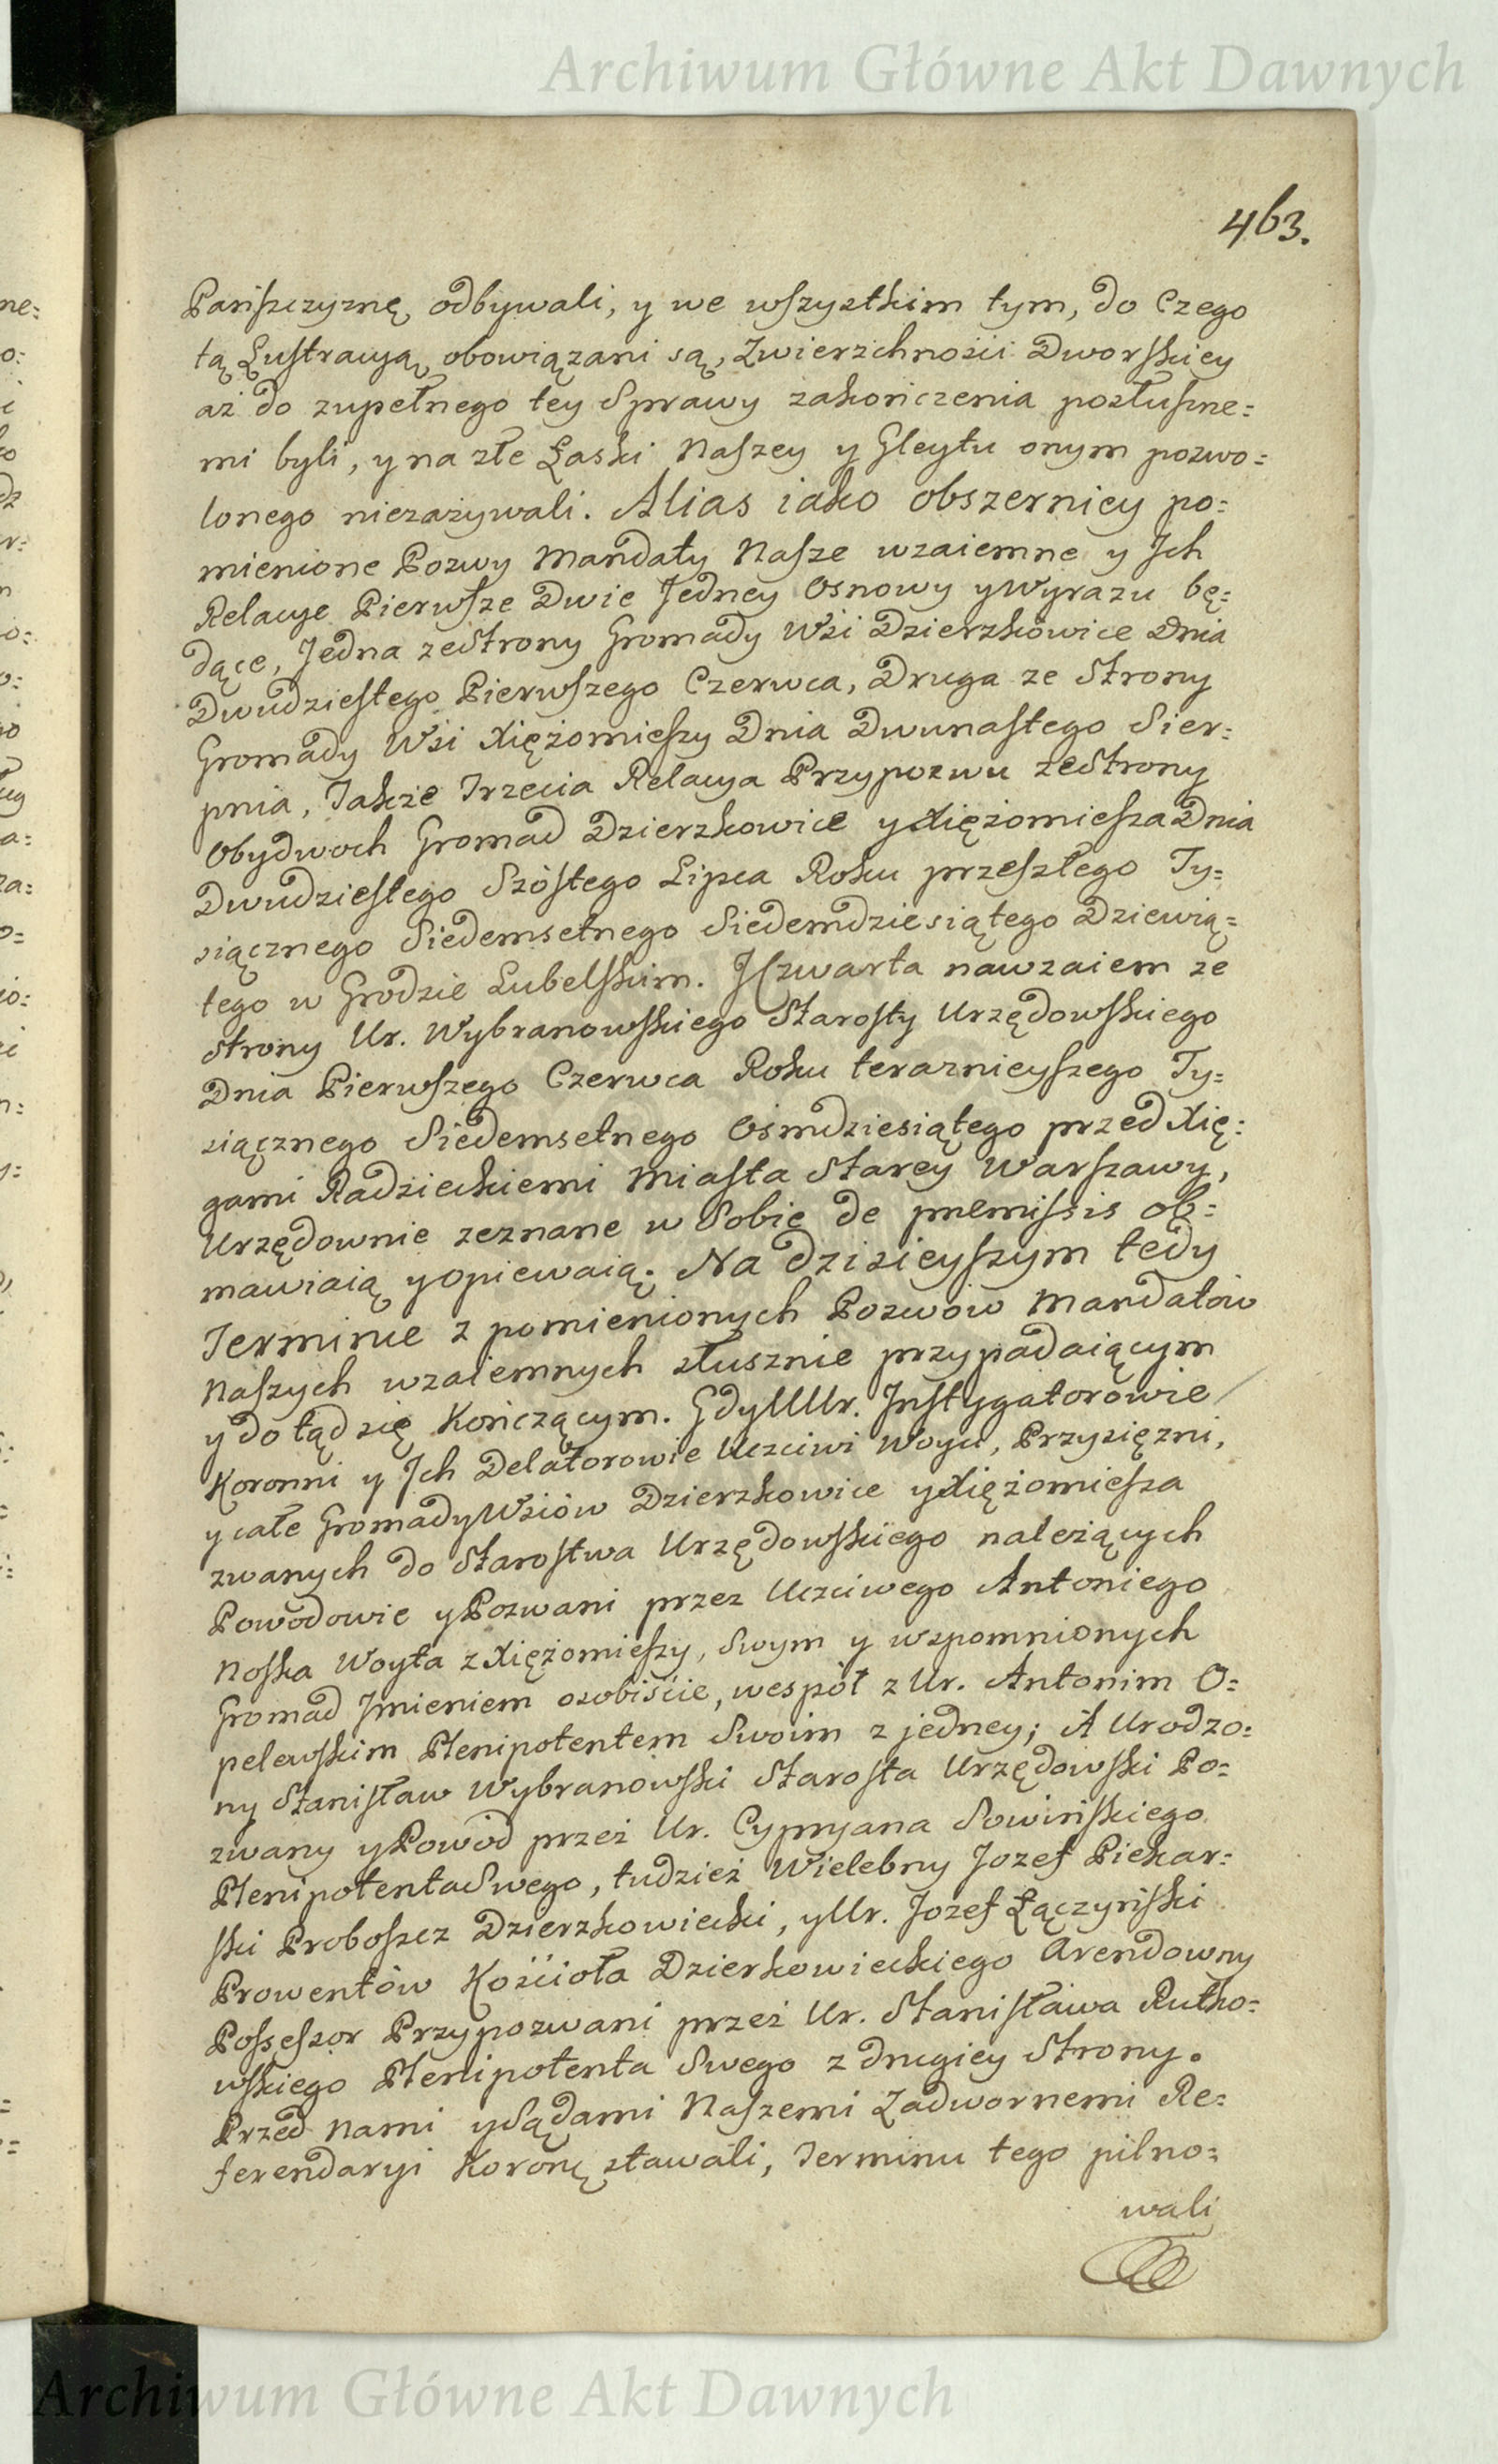 Archiwum Główne Akt Dawnych
463.
Pańszczyznę odbywali, y we wszystkim tym, do Czego
tą Lustracyą obowiązani są, Zwierzchności Dworskiey
aż do zupełnego tey Sprawy zakończenia posłuszne=
mi byli, y na złe Łaski Naszey y Gleytu onym pozwo=
lonego niezażywali. Alias iako obszerniey po=
mienione Pozwy Mandaty Nasze wzaiemne y Jch
Relacye Pierwsze Dwie Jedney Osnowy y Wyrazu bę=
dące, Jedna ze Strony Gromady Wsi Dzierzkowice Dnia
Dwudziestego Pierwszego Czerwca, Druga ze Strony
Gromady Wsi Xiężomieszy Dnia Dwunastego Sier=
pnia, Także Trzecia Relacya Przypozwu ze Strony
Obydwoch Gromad Dzierzkowice y Xiężomiesza Dnia
Dwudziestego Szóstego Lipca Roku przeszłego Ty=
siącznego Siedemsetnego Siedemdziesiątego Dziewią=
tego w Grodzie Lubelskim. J Czwarta nawzaiem ze
Strony Ur. Wybranowskiego Starosty Urzędowskiego
Dnia Pierwszego Czerwca Roku teraznieyszego Ty=
siącznego Siedemsetnego Osmdziesiątego przed Xię=
gami Radzieckiemi Miasta Starey Warszawy,
Urzędownie zeznane w Sobie de praemissis ob=
mawiaią y opiewaią. Na dzisieyszym tedy
Terminie z pomienionych Pozwów Mandatów
Naszych wzaiemnych słusznie przypadaiącym
y do tąd się Kończącym. Gdy UUr. Jnstygatorowie
Koronni y Jch Delatorowie Uczciwi Woyci, Przysięzni,
y całe Gromady Wsiów Dzierzkowice y Xiężomiesza
zwanych do Starostwa Urzędowskiego należących
Powodowie y Pozwani przez Uczciwego Antoniego
Noska Woyta z Xiężomieszy, Swym y wspomnionych
Gromad Jmieniem osobiście, wespół z Ur. Antonim O=
pelewskim Plenipotentem Swoim z jedney; A Urodzo=
ny Stanisław Wybranowski Starosta Urzędowski Po=
zwany y Powod przez Ur. Cypryana Sowińskiego
Plenipotenta Swego, tudzież Wielebny Jozef Piekar=
ski Proboszcz Dzierzkowiecki, y Ur. Jozef Łączyński
Prowentów Kościoła Dzierkowieckiego Arendowny
Possessor Przypozwani przez Ur. Stanisława Rutko=
wskiego Plenipotenta Swego z drugiey Strony.
Przed Nami y Sądami Naszemi Zadwornemi Re=
ferendaryi Koronę stawali, Terminu tego pilno=
wali
Archiwum Główne Akt Dawnych